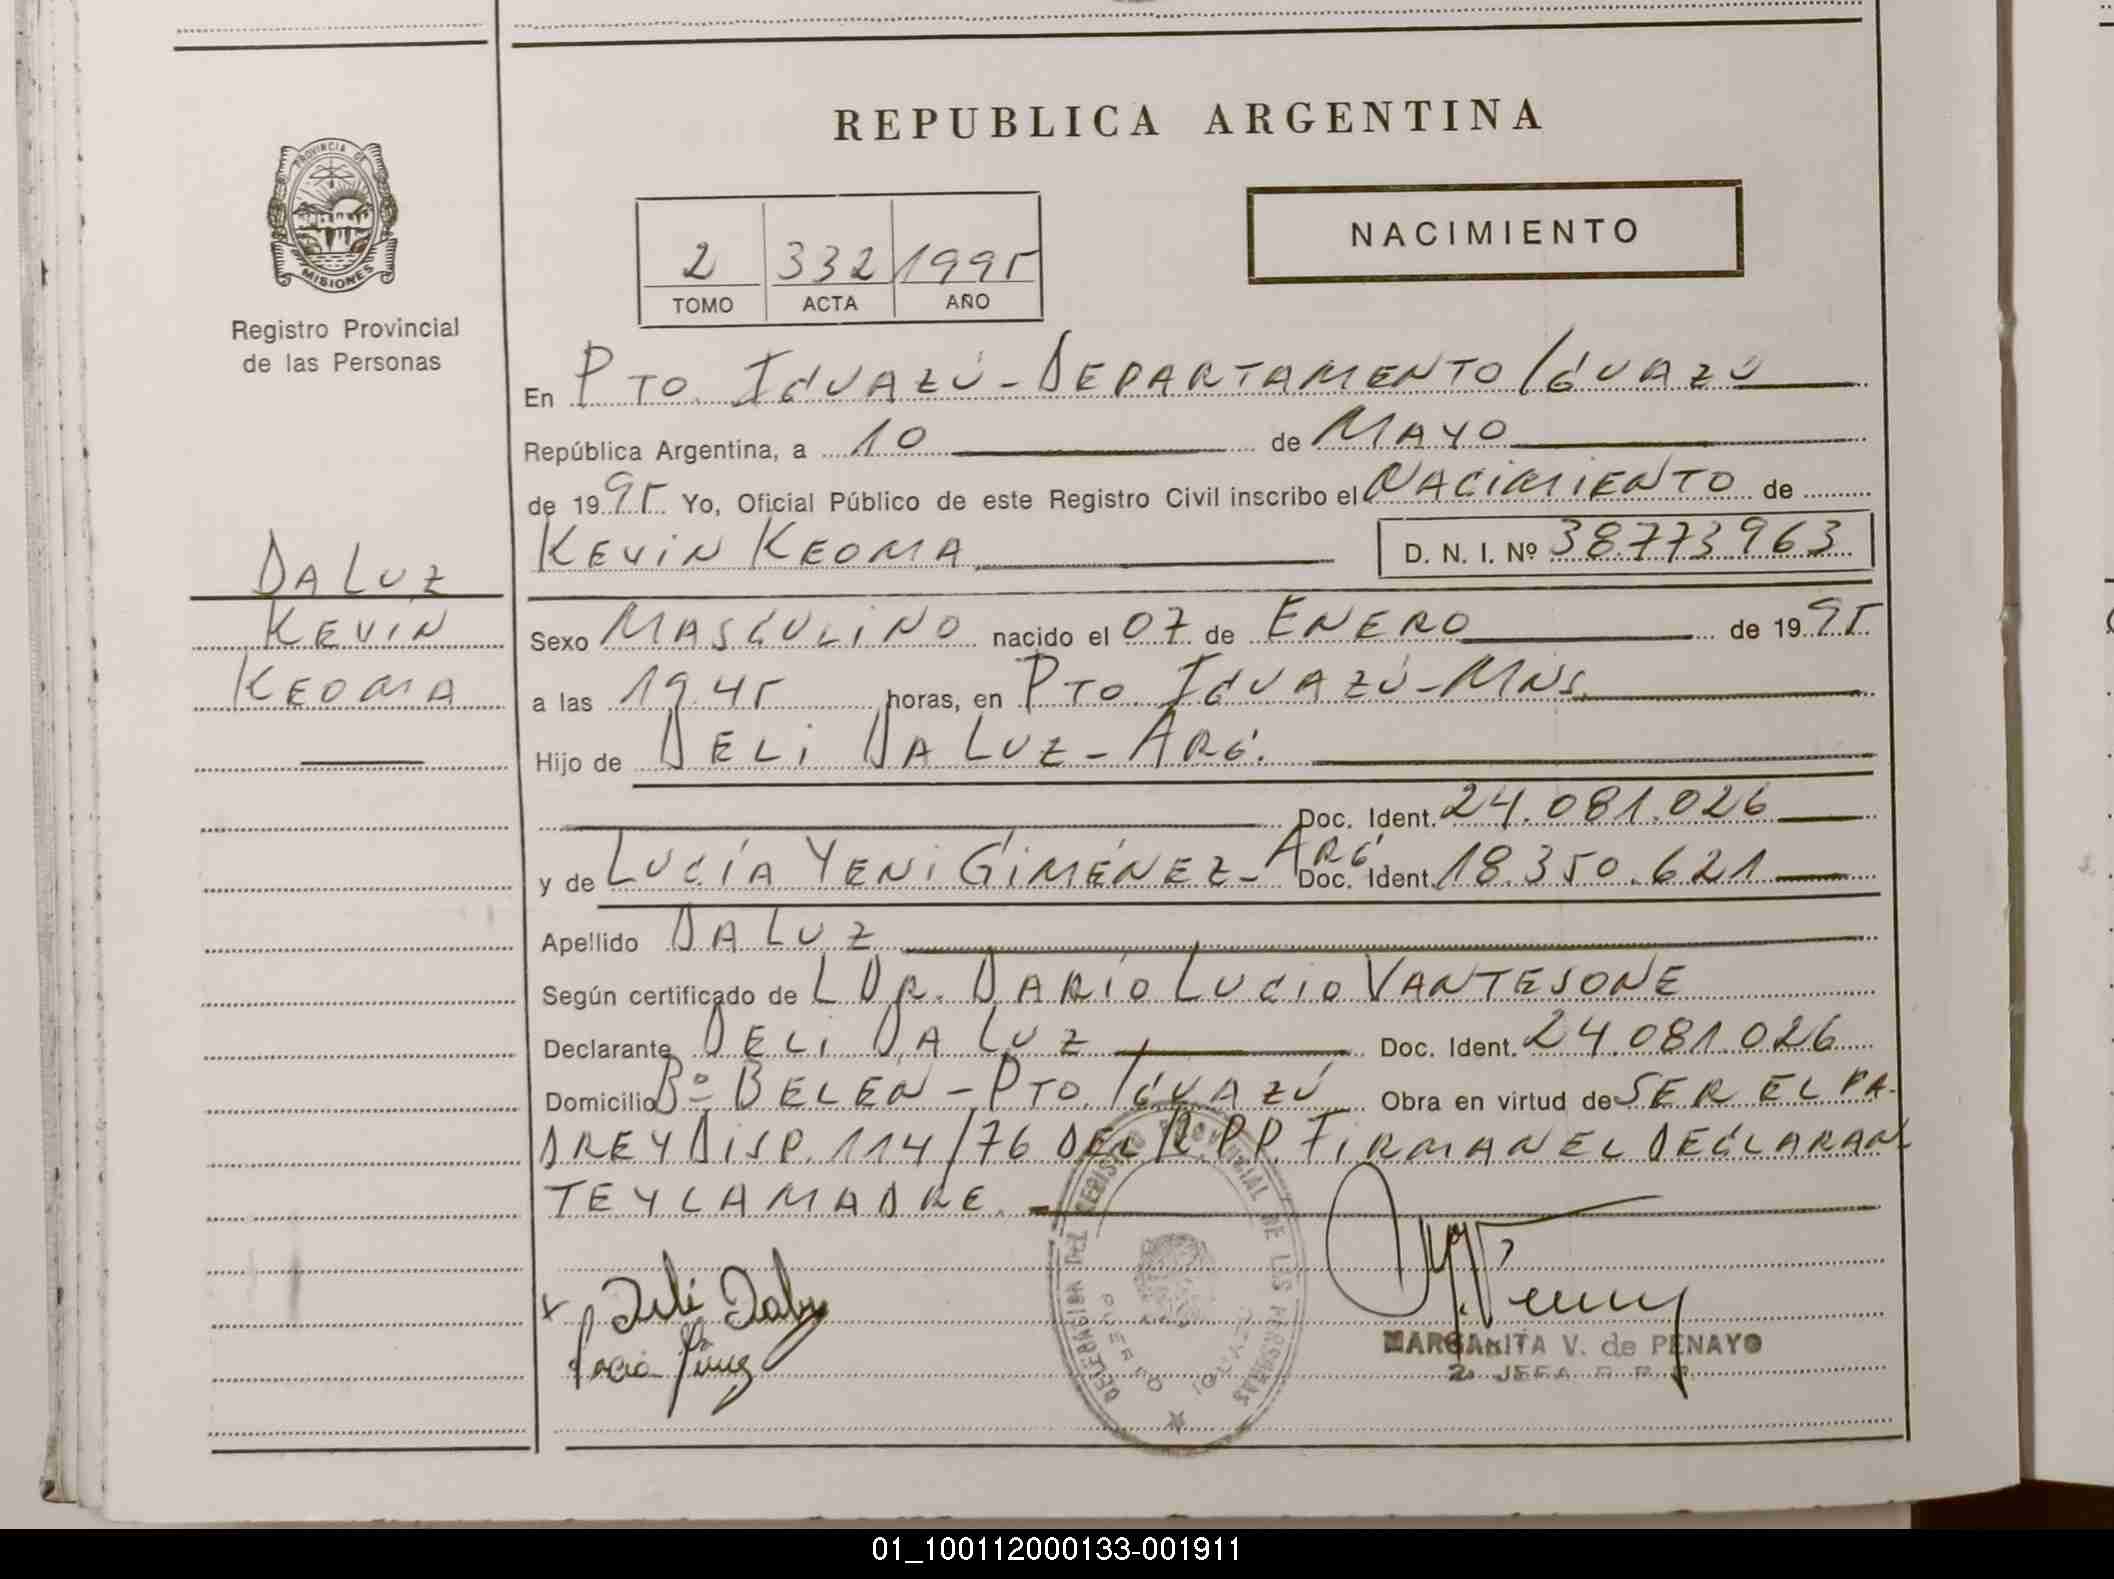 REPUBLICA ARGENTINA
PROVINCIA DE
MISIONES
Registro Provincial
de las Personas
NACIMIENTO
2 332 1995
TOMO ACTA AÑO
En PTO. IGUAZÚ - DEPARTAMENTO IGUAZÚ
República Argentina, a 10 de MAYO
de 1995 Yo, Oficial Público de este Registro Civil inscribo el NACIMIENTO de
KEVIN KEOMA D. N. I. Nº 38.773.963
DA LUZ
KEVIN
KEOMA
Sexo MASCULINO nacido el 07 de ENERO de 1995
a las 19.45 horas, en PTO IGUAZÚ - MNS.
Hijo de DELI DA LUZ - ARG.
Doc. Ident. 24.081.026
y de LUCÍA YENI GIMÉNEZ - ARG. Doc. Ident. 18.350.621
Apellido DA LUZ
Según certificado de L DR. DARÍO LUCIO VANTESONE
Declarante DELI DA LUZ Doc. Ident. 24.081.026
Domicilio Bº BELÉN - PTO. IGUAZÚ Obra en virtud de SER EL PA-
DRE Y DISP. 114/76 DEL R.P.P. FIRMAN EL DECLARAN
TE Y LA MADRE.
DELEGACION DEL REGISTRO PROVINCIAL DE LAS PERSONAS
PUERTO IGUAZU
MARGARITA V. de PENAYO
2. JEFA R.P.P.
01_100112000133-001911